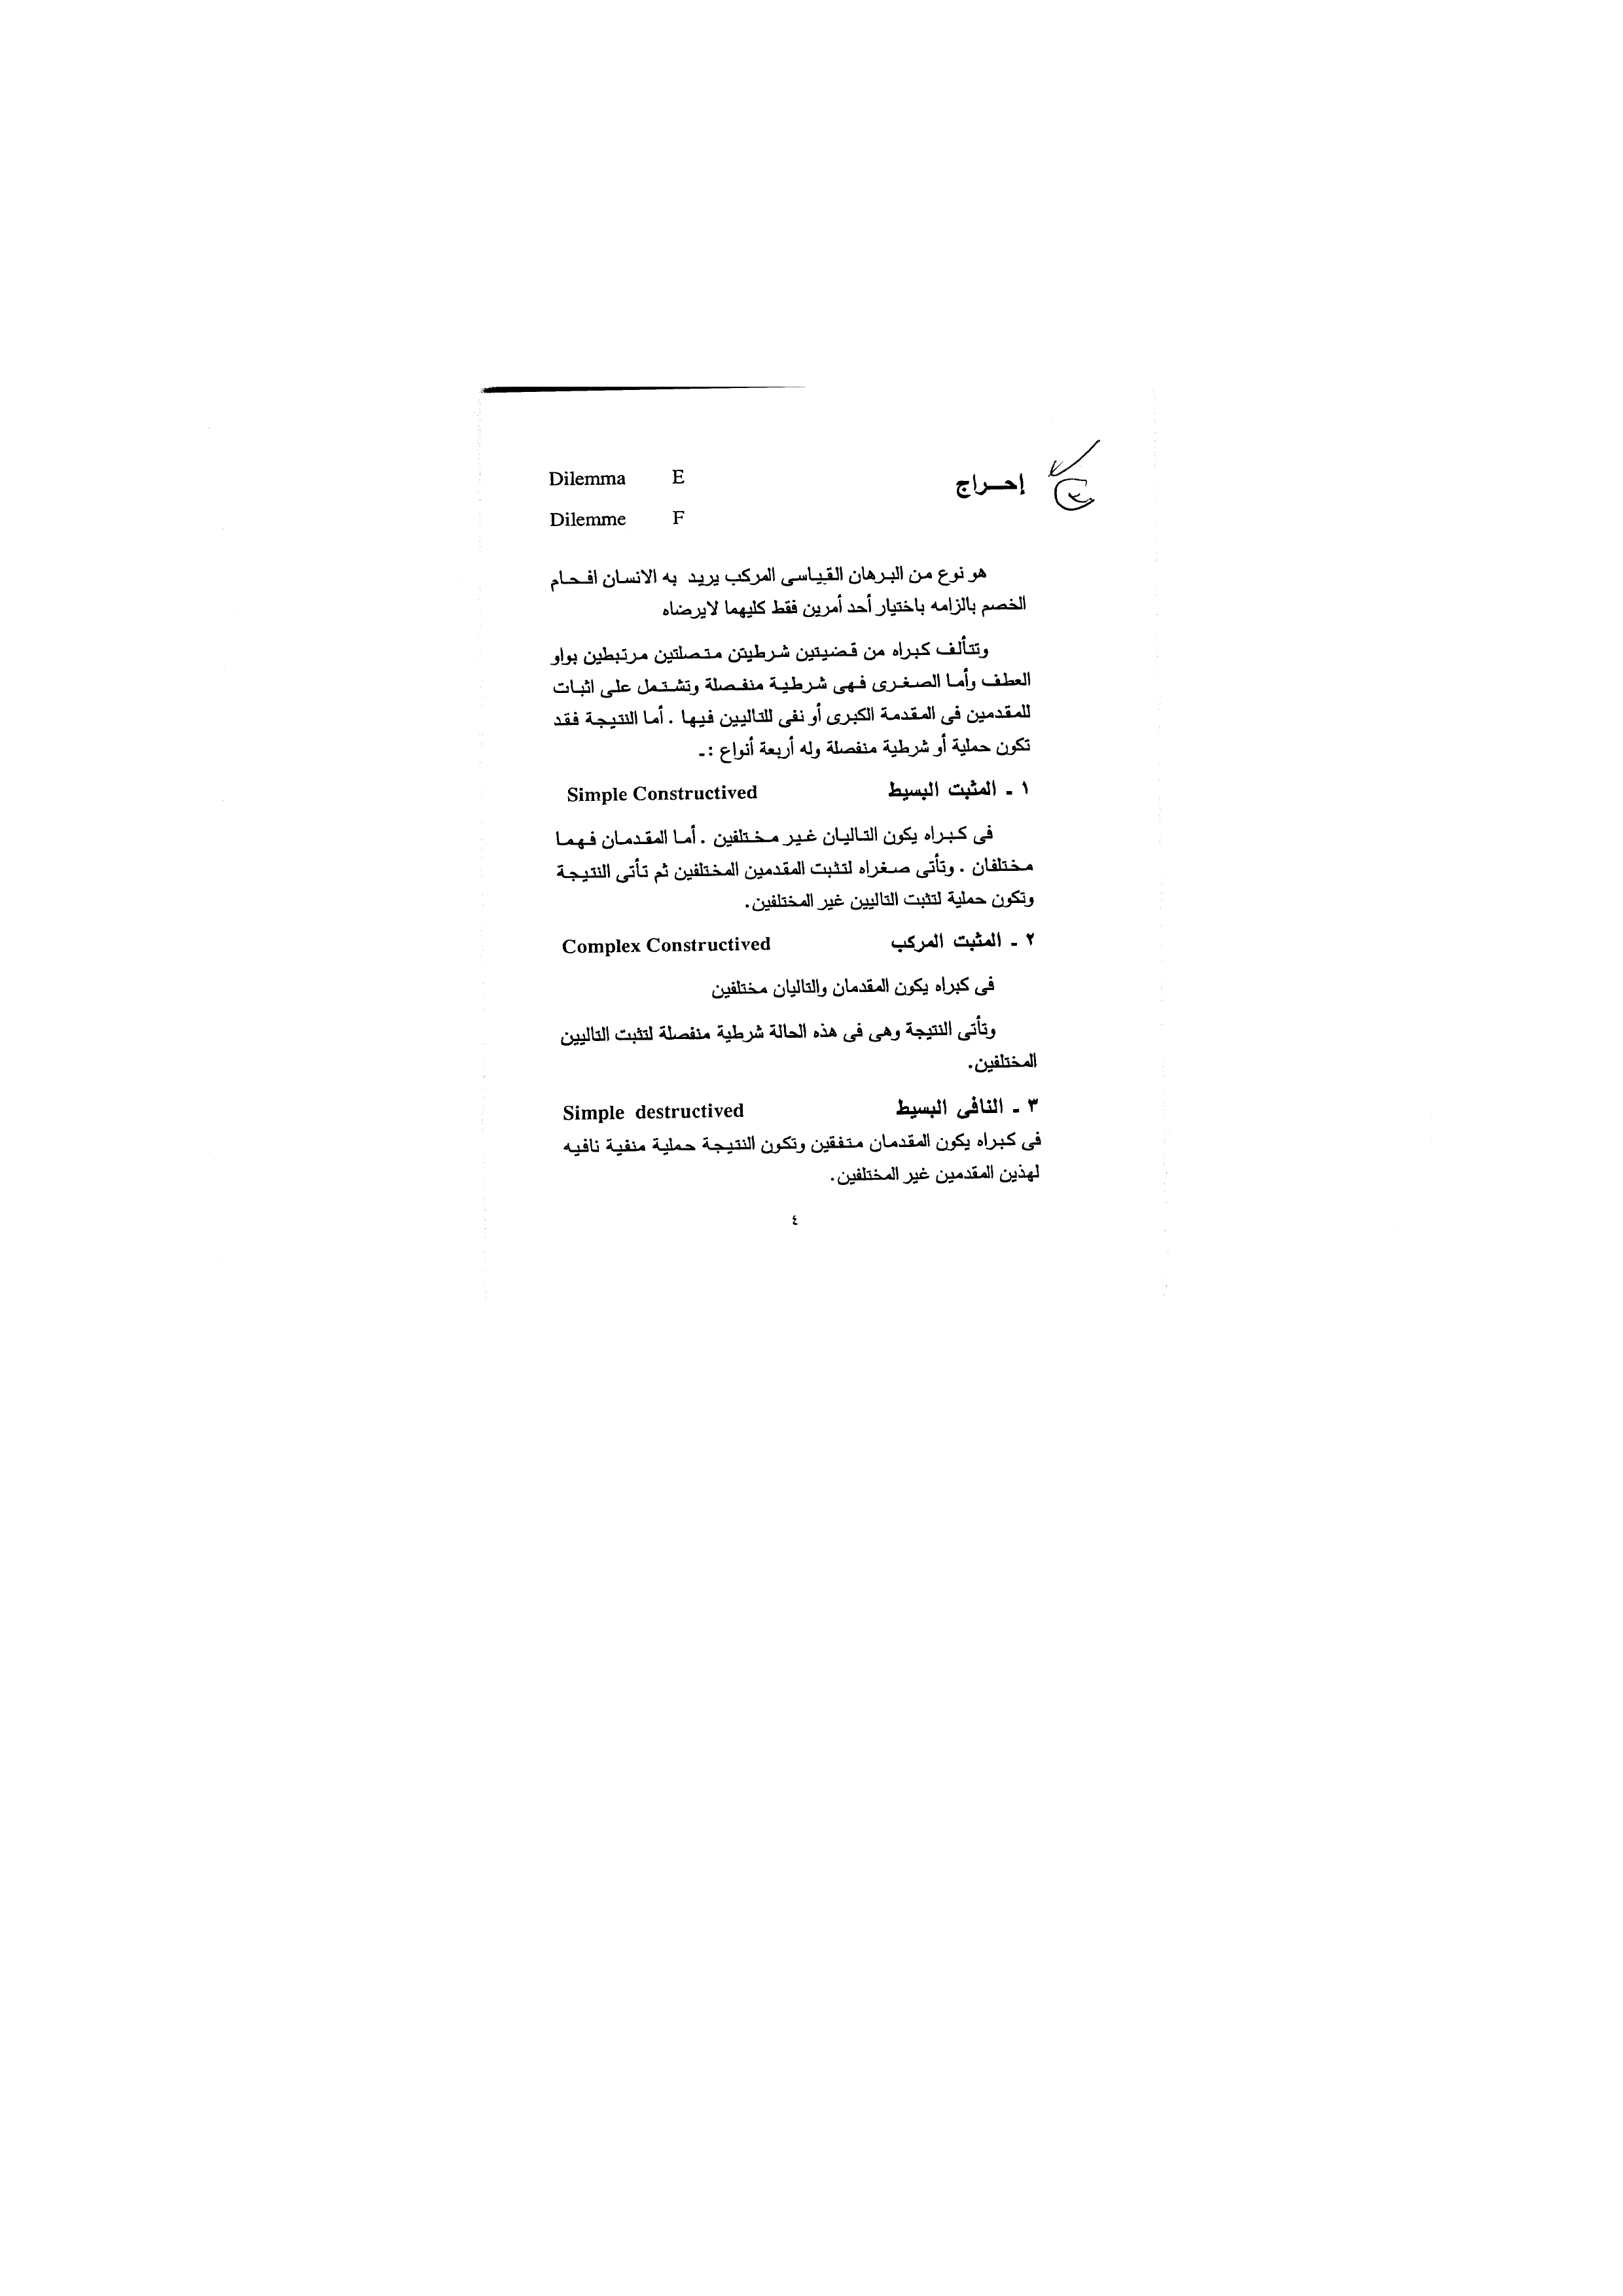 إحراج Dilemma E
Dilemme F
هو نوع من البرهان القياسى المركب يريد به الانسان افحام
الخصم بالزامه باختيار أحد أمرين فقط كليهما لايرضاه
وتتألف كبراه من قضيتين شرطيتن متصلتين مرتبطين بواو
العطف وأما الصغرى فهى شرطية منفصلة وتشتمل على اثبات
للمقدمين فى المقدمة الكبرى أو نفى للتاليين فيها . أما النتيجة فقد
تكون حملية أو شرطية منفصلة وله أربعة أنواع :ـ
١ ـ المثبت البسيط Simple Constructived
فى كبراه يكون التاليان غير مختلفين . أما المقدمان فهما
مختلفان . وتأتى صغراه لتثبت المقدمين المختلفين ثم تأتى النتيجة
وتكون حملية لتثبت التاليين غير المختلفين.
٢ ـ المثبت المركب Complex Constructived
فى كبراه يكون المقدمان والتاليان مختلفين
وتأتى النتيجة وهى فى هذه الحالة شرطية منفصلة لتثبت التاليين
المختلفين.
٣ ـ النافى البسيط Simple destructived
فى كبراه يكون المقدمان متفقين وتكون النتيجة حملية منفية نافيه
لهذين المقدمين غير المختلفين.
٤